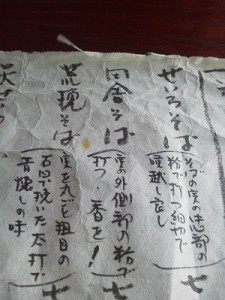 せいろそば
そばの実の中心部の
粉で打つ細物で
喉越し良し
七
田舎そば
実の外側部の粉で
打つ。香を!
七
荒挽そば
実を丸ごと粗目の
石臼で挽いた太打で
昔懐しの味
七